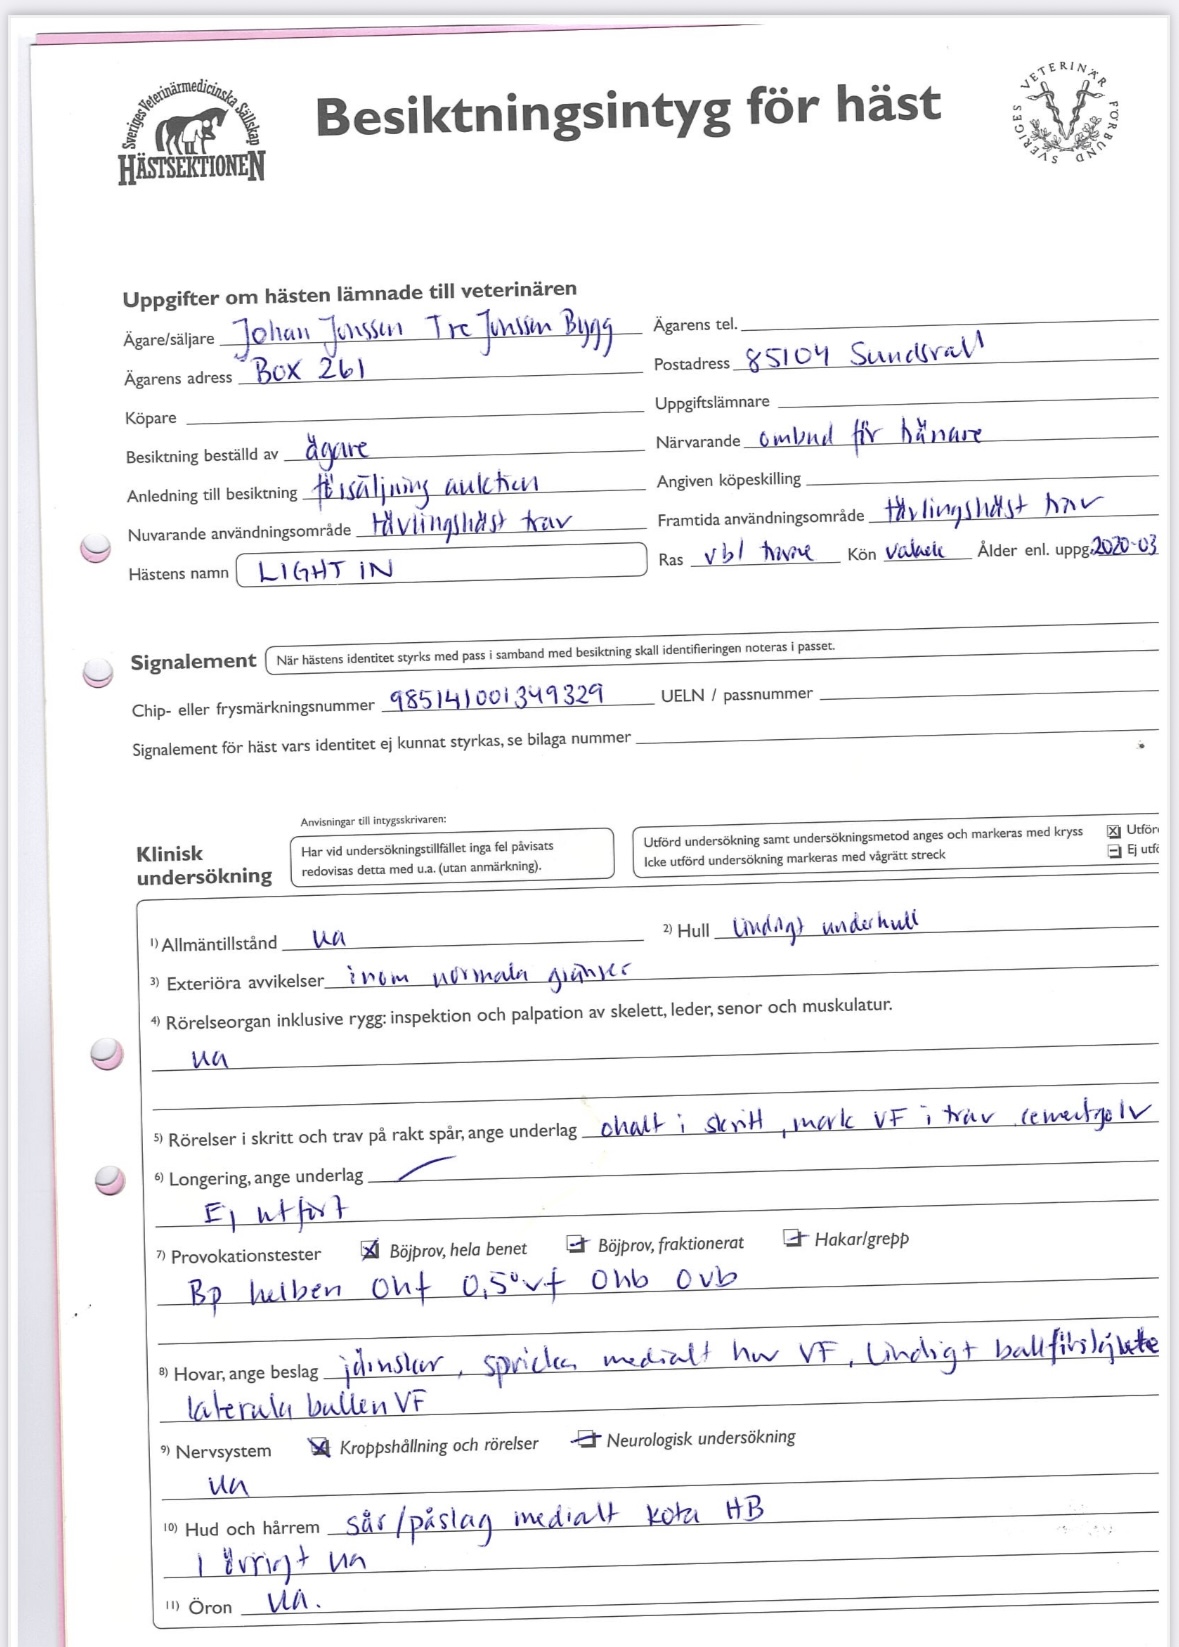 Sveriges Veterinärmedicinska Sällskap
HÄSTSEKTIONEN
Besiktningsintyg för häst
SVERIGES VETERINÄR FÖRBUND
Uppgifter om hästen lämnade till veterinären
Ägare/säljare Johan Jonsson Tre Jonsson Bygg Ägarens tel.
Ägarens adress BOX 261 Postadress 85104 Sundsvall
Köpare Uppgiftslämnare
Besiktning beställd av ägare Närvarande ombud för tränare
Anledning till besiktning försäljning auktion Angiven köpeskilling
Nuvarande användningsområde tävlingshäst trav Framtida användningsområde tävlingshäst trav
Hästens namn LIGHT IN Ras vbl travare Kön valack Ålder enl. uppg. 2020-03
Signalement När hästens identitet styrks med pass i samband med besiktning skall identifieringen noteras i passet.
Chip- eller frysmärkningsnummer 985141001349329 UELN / passnummer
Signalement för häst vars identitet ej kunnat styrkas, se bilaga nummer
Anvisningar till intygsskrivaren:
Klinisk undersökning
Har vid undersökningstillfället inga fel påvisats
redovisas detta med u.a. (utan anmärkning).
Utförd undersökning samt undersökningsmetod anges och markeras med kryss Utför
Icke utförd undersökning markeras med vågrätt streck Ej utfö
1) Allmäntillstånd ua 2) Hull Lindrigt underhull
3) Exteriöra avvikelser inom normala gränser
4) Rörelseorgan inklusive rygg: inspektion och palpation av skelett, leder, senor och muskulatur.
ua
5) Rörelser i skritt och trav på rakt spår, ange underlag ohalt i skritt, mark VF i trav cementgolv
6) Longering, ange underlag
Ej utfört
7) Provokationstester Böjprov, hela benet Böjprov, fraktionerat Hakar/grepp
Bp helben 0hf 0,5°vf 0hb 0vb
8) Hovar, ange beslag järnskor, spricka medialt hov VF, Lindrigt ballförskjutet
laterala ballen VF
9) Nervsystem Kroppshållning och rörelser Neurologisk undersökning
ua
10) Hud och hårrem sår/påslag medialt kota HB
I övrigt ua
11) Öron ua.